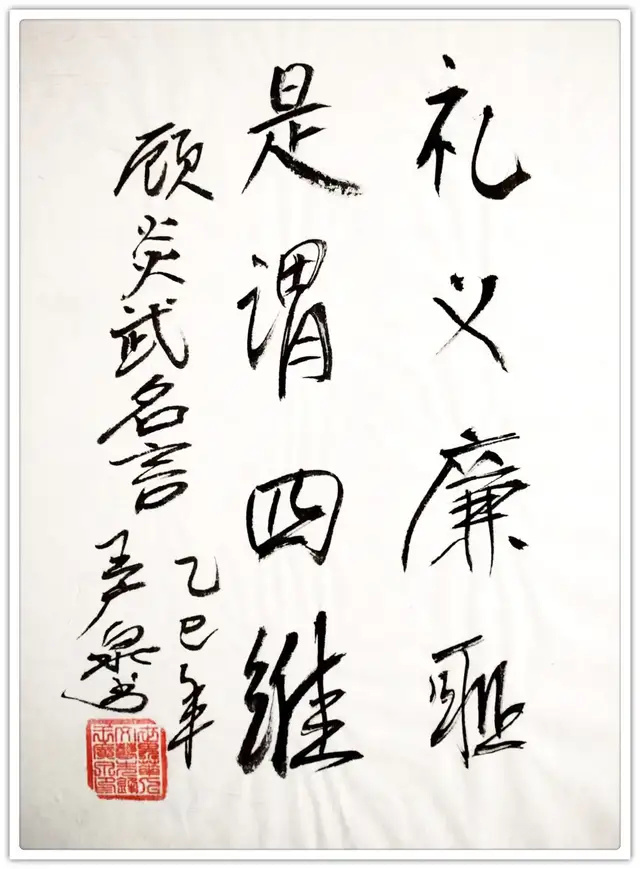 礼义廉耻
是谓四维
顾炎武名言
乙巳年
泉书